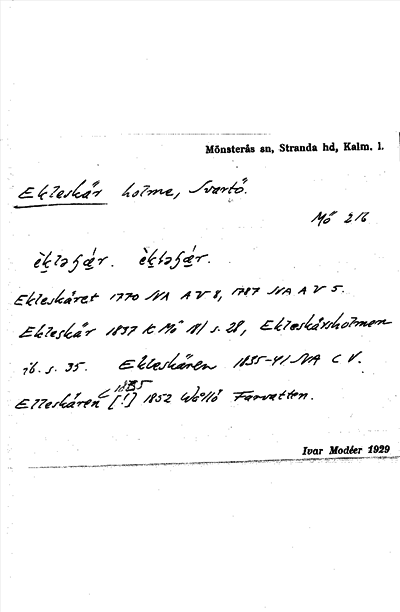 Mönsterås sn, Stranda hd, Kalm. l.
Ekleskär holme, Svartö.
Mö 216
Ekleskäret 1770 JVA A V 8, 1787 JVA A V 5.
Ekleskär 1837 K Mö 18/ s. 28, Ekleskärsholmen
ib. s. 35. Ekleskären 1835-41 JVA C V.
Elleskären [!] 1852 Wollö Farvatten.
Ivar Modéer 1929